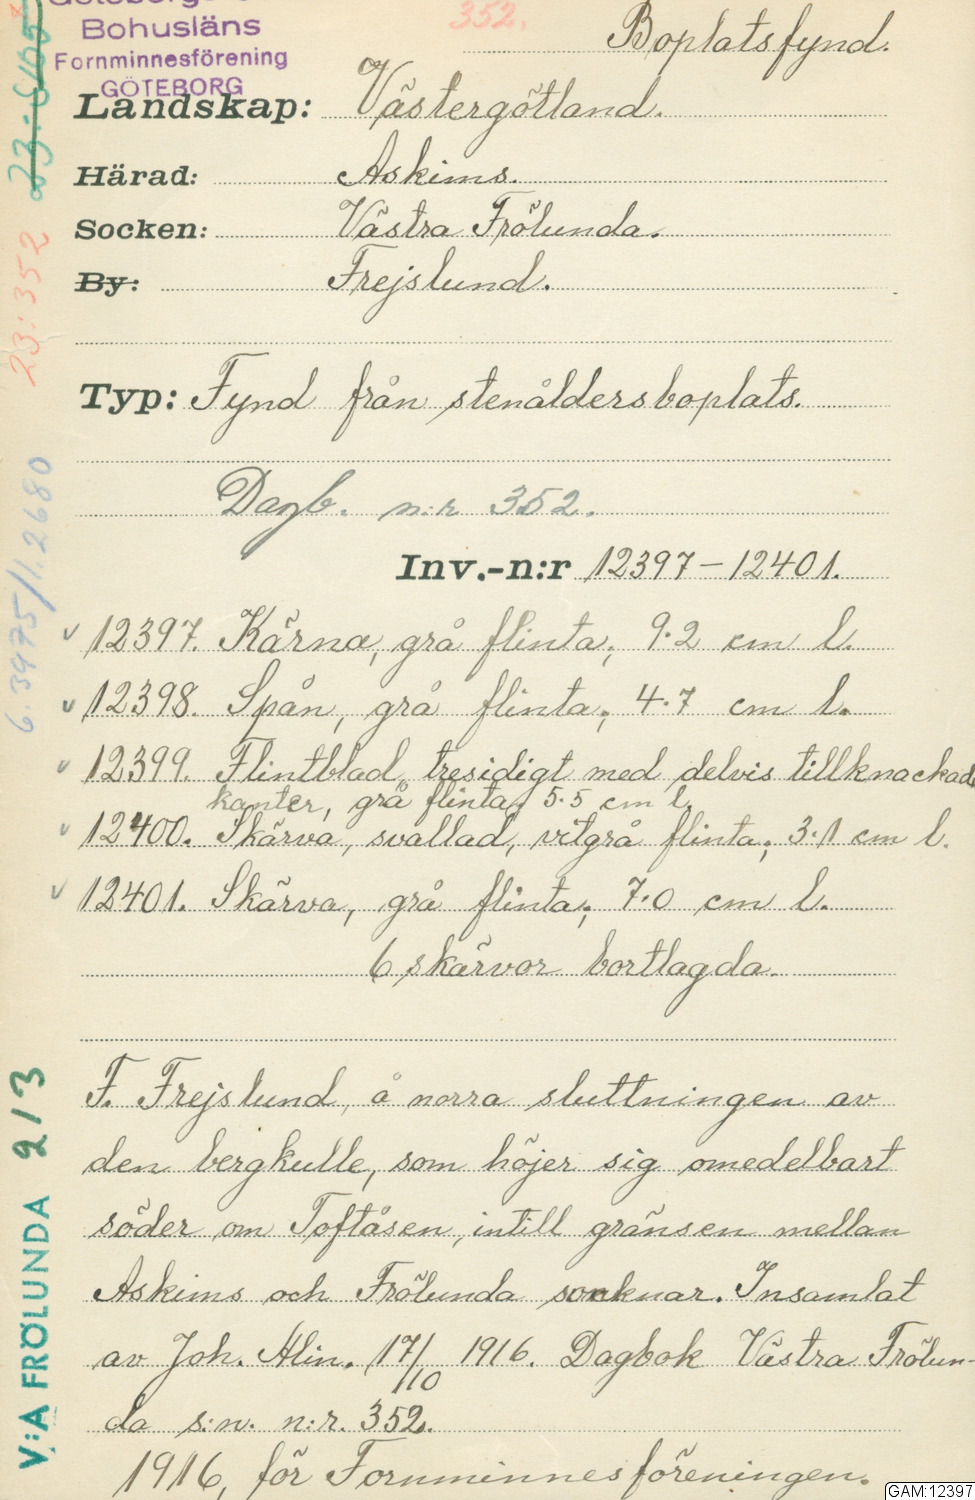 Bohusläns
Fornminnesförening
GÖTEBORG
352.
Boplatsfynd.
Landskap: Västergötland.
Härad: Askims.
Socken: Västra Frölunda.
By: Frejslund.
Typ: Fynd från stenåldersboplats.
Dagb. n:r 352.
Inv.-n:r 12397–12401.
12397. Kärna, grå flinta; 9.2 cm l.
12398. Spån, grå flinta; 4.7 cm l.
12399. Flintblad, tresidigt med delvis tillknackade
kanter, grå flinta; 5.5 cm l.
12400. Skärva, svallad, vitgrå flinta; 3.1 cm l.
12401. Skärva, grå flinta; 7.0 cm l.
6 skärvor bortlagda.
F. Frejslund, å norra sluttningen av
den bergkulle, som höjer sig omedelbart
söder om Toftåsen, intill gränsen mellan
Askims och Frölunda socknar. Insamlat
av Joh. Alin. 17/10 1916. Dagbok Västra Frölun-
da s:n. n:r. 352.
1916, för Fornminnesföreningen.
23:352
6.3975/1.2680
V:A FRÖLUNDA 213
GAM:12397